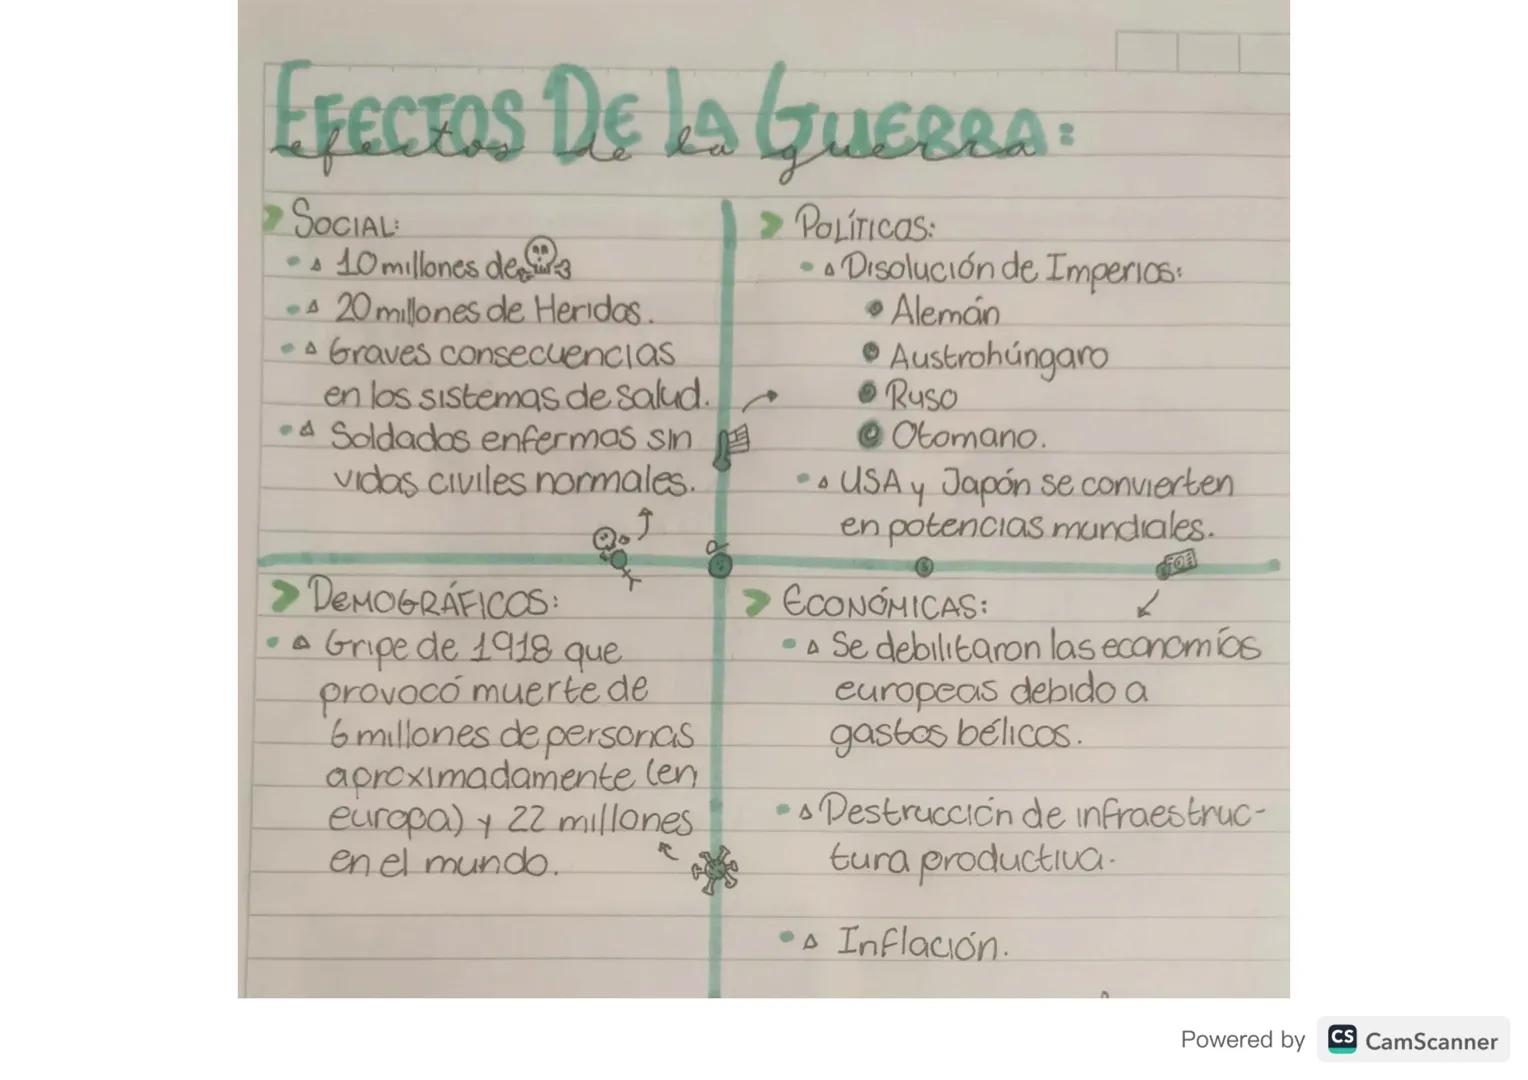 EFECTOS DE LA GUERRA:
efectos de la guerra
SOCIAL:
10 millones de
20 millones de Heridos.
Graves consecuencias
en los sistemas de salud.
Soldados enfermos sin
vidas civiles normales.
POLÍTICOS:
Disolución de Imperios:
Alemán
Austrohúngaro
Ruso
Otomano.
USA y Japón se convierten
en potencias mundiales.
DEMOGRÁFICOS:
Gripe de 1918 que
provocó muerte de
6 millones de personas
aproximadamente (en
europa) y 22 millones
en el mundo.
ECONÓMICAS:
Se debilitaron las economías
europeas debido a
gastos bélicos.
Destrucción de infraestruc-
tura productiva.
Inflación.
Powered by CS CamScanner